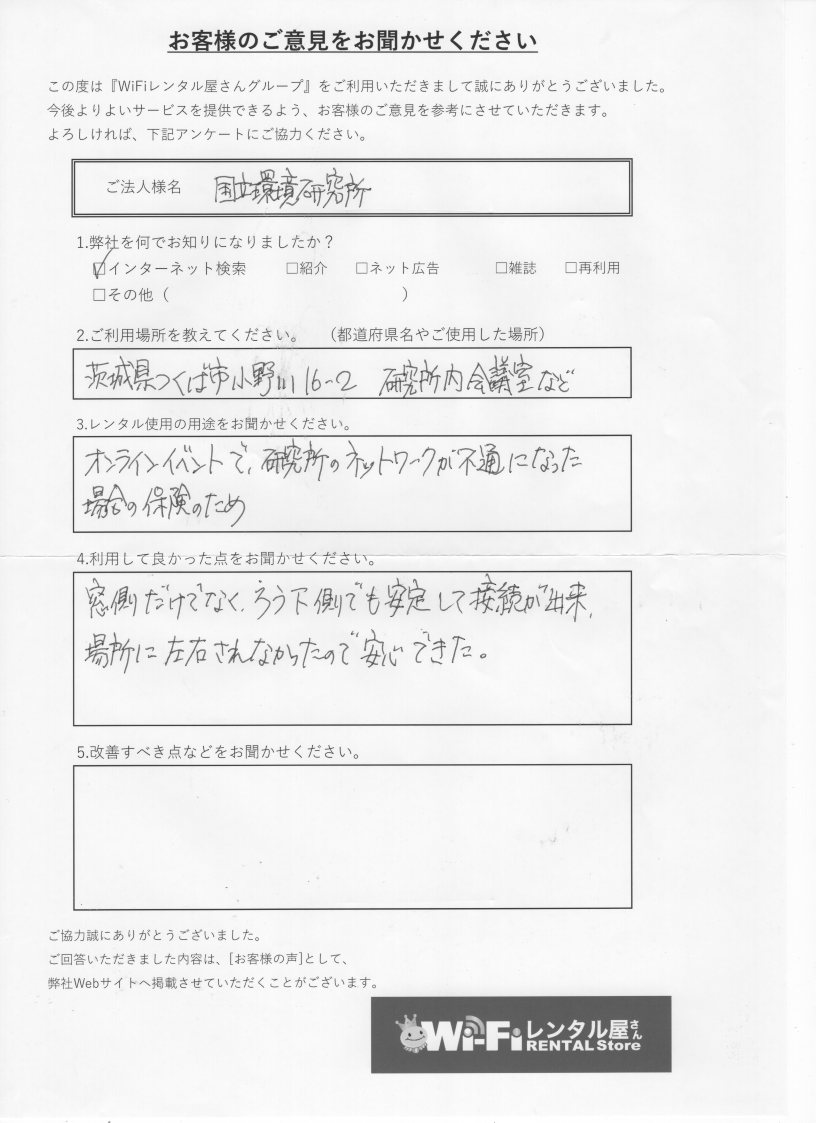 お客様のご意見をお聞かせください
この度は『WiFiレンタル屋さんグループ』をご利用いただきまして誠にありがとうございました。
今後よりよいサービスを提供できるよう、お客様のご意見を参考にさせていただきます。
よろしければ、下記アンケートにご協力ください。
ご法人様名 国立環境研究所
1.弊社を何でお知りになりましたか？
☑インターネット検索 □紹介 □ネット広告 □雑誌 □再利用
□その他（ ）
2.ご利用場所を教えてください。 （都道府県名やご使用した場所）
茨城県つくば市小野川16-2 研究所内会議室など
3.レンタル使用の用途をお聞かせください。
オンラインイベントで、研究所のネットワークが不通になった
場合の保険のため
4.利用して良かった点をお聞かせください。
窓側だけでなく、ろう下側でも安定して接続が出来、
場所に左右されなかったので安心できた。
5.改善すべき点などをお聞かせください。
ご協力誠にありがとうございました。
ご回答いただきました内容は、[お客様の声]として、
弊社Webサイトへ掲載させていただくことがございます。
Wi-Fiレンタル屋さん
RENTAL Store